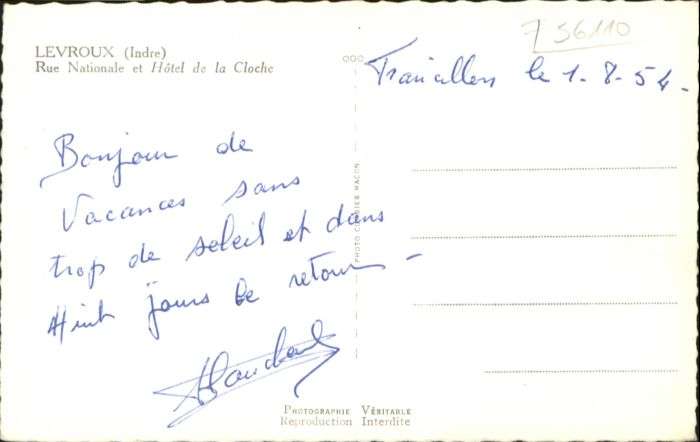 LEVROUX (Indre)
Rue Nationale et Hôtel de la Cloche
le 1-8-54-
Bonjour de
Vacances sans
trop de soleil et dans
Huit jours le retour -
PHOTOGRAPHIE VÉRITABLE
Reproduction Interdite